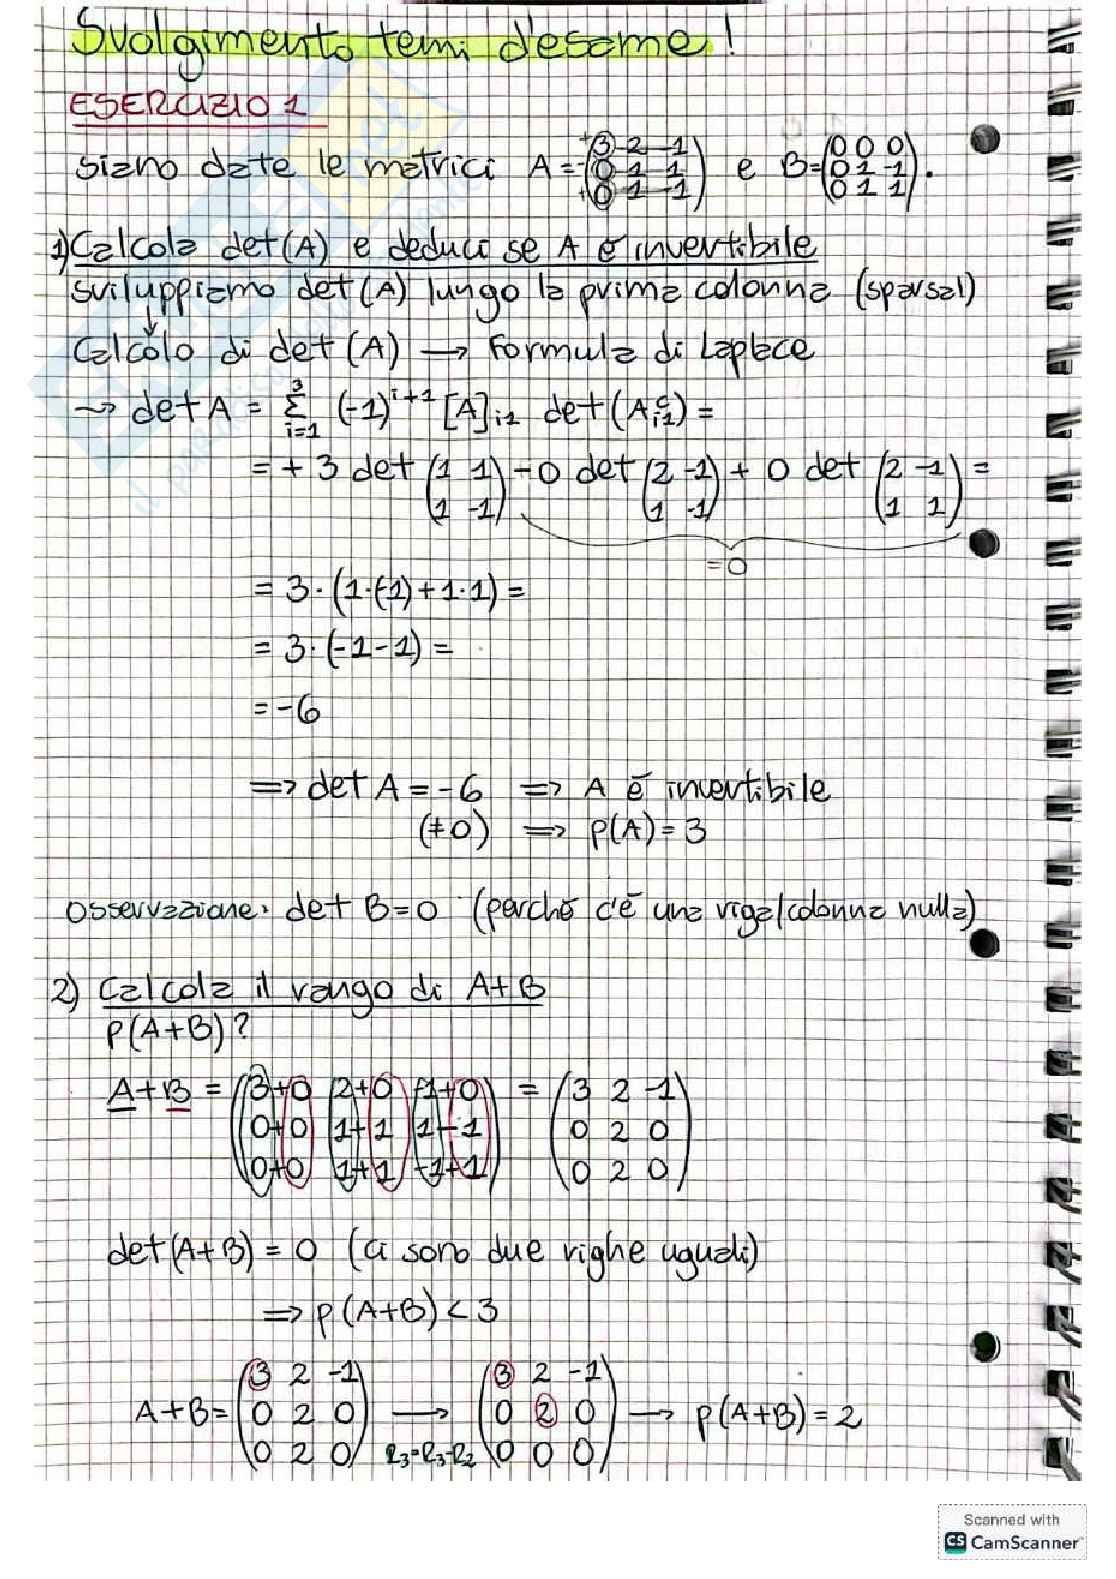 Svolgimento temi d'esame!
ESERCIZIO 1
Siano date le matrici A = (3 2 -1; 0 1 1; 0 1 -1) e B = (0 0 0; 0 1 -1; 0 1 1).
1) Calcola det(A) e deduci se A è invertibile
sviluppiamo det(A) lungo la prima colonna (sparsa!)
Calcolo di det(A) → Formula di Laplace
⇝ det A = Σ_{i=1}^{3} (-1)^{i+1} [A]_{i1} det(A^c_{i1}) =
= + 3 det (1 1; 1 -1) - 0 det (2 -1; 1 -1) + 0 det (2 -1; 1 1) =
= 0
= 3·(1·(-1)+1·1) =
= 3·(-1-1) =
= -6
⟹ det A = -6 ⟹ A è invertibile
(≠0) ⟹ ρ(A) = 3
Osservazione: det B = 0 (perchè c'è una riga/colonna nulla)
2) Calcola il rango di A+B
ρ(A+B)?
A+B = (3+0 2+0 -1+0; 0+0 1+1 1-1; 0+0 1+1 -1+1) = (3 2 -1; 0 2 0; 0 2 0)
det(A+B) = 0 (ci sono due righe uguali)
⟹ ρ(A+B) < 3
A+B = (3 2 -1; 0 2 0; 0 2 0) → R3=R3-R2 (3 2 -1; 0 2 0; 0 0 0) → ρ(A+B) = 2
Scanned with
CS CamScanner